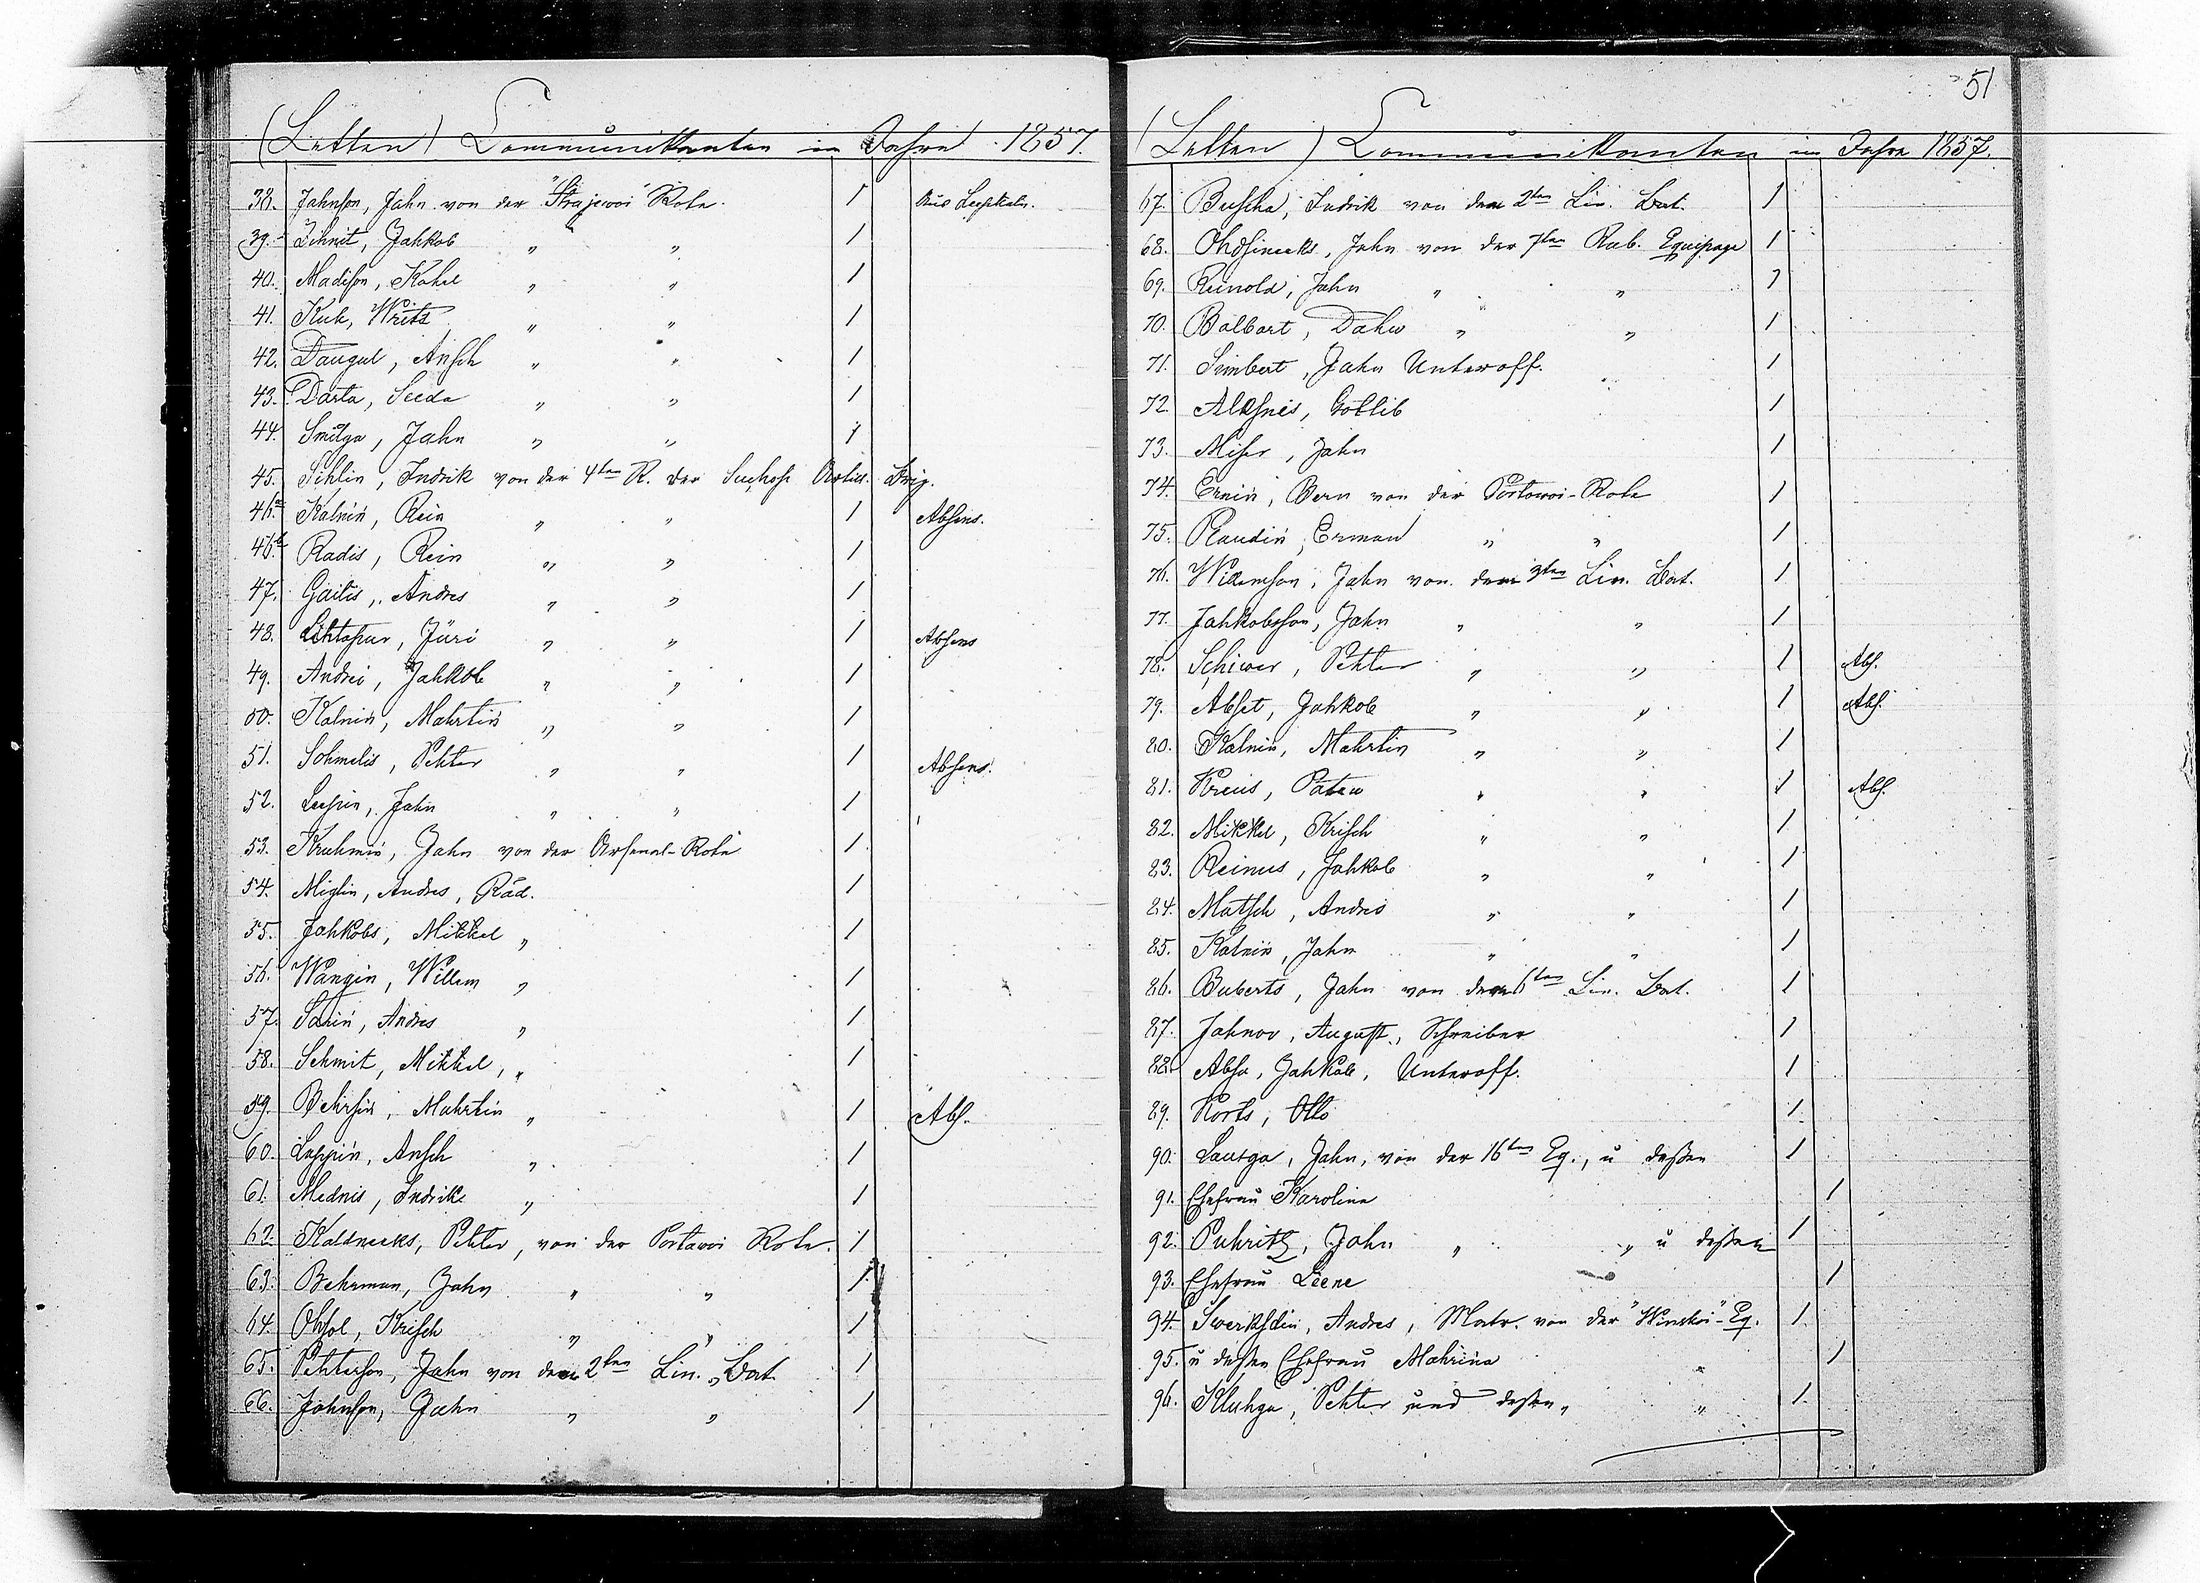 (Letten) Communikanten im Jahre 1857.
38. Jahnson, Jahn von der "Strajewoi" Rote. 1
39. Zihrit, Jahkob " " 1
40. Madison, Kahrl " " 1
41. Kuk, Writz " " 1
42. Daugul, Ansch " " 1
43. Darta, Seeda " " 1
44. Smilga, Jahn " " 1
45. Sihlin, Indrik von der 4ten R. der Artill. Brig.
46.a Kalnin, Rein " " 1 Absens.
46.b Radis, Rein " " 1
47. Gailis, Andres " " 1
48. Jüri " " 1 Absens
49. Andrei, Jahkob " " 1
50. Kalnin, Mahrtin " " 1
51. Sohmelis, Pehter " " 1 Absens.
52. Leepin, Jahn " " 1
53. Kruhmin, Jahn von der Arsenal-Rote 1
54. Miglin, Andres, Räd. 1
55. Jahkobs, Mikkel " 1
56. Wangin, Willem " 1
57. Andres " 1
58. Schmit, Mikkel, " 1
59. Behrsin, Mahrtin " 1 Abs.
60. Lappin, Ansch " 1
61. Mednis, Indrik " 1
62. Kaldneeks, Pehter, von der Portowoi Rote. 1
63. Behrman, Jahn " " 1
64. Ohsol, Krisch " " 1
65. Pehterson, Jahn von dem 2ten Lin. Bat. 1
66. Jahnson, Jahn " " 1
51
(Letten) Communikanten im Jahre 1857.
67. Buscha, Indrik von dem 2ten Lin. Bat. 1
68. Ohdsineeks, Jahn von der 7ten Rub. Equipage 1
69. Reinold, Jahn " " 1
70. Balbart, Dahw " " 1
71. Simbert, Jahn Unteroff. 1
72. Alksnis, Gottlib 1
73. Miser, Jahn 1
74. Ernin, Bern von der Portowoi-Rote 1
75. Raudin, Erman " " 1
76. Willemson, Jahn von dem 3ten Lin. Bat. 1
77. Jahkobsson, Jahn " " 1
78. Schiwer, Pehter " " 1 Abs.
79. Abset, Jahkob " " 1 Abs.
80. Kalnin, Mahrtin " " 1
81. Kreus, " " 1 Abs.
82. Mikkel, Krisch " " 1
83. Reinus, Jahkob " " 1
84. Matsch, Andres " " 1
85. Kalnin, Jahn " " 1
86. Buberts, Jahn von dem 6ten Lin. Bat. 1
87. Jahnov, August, Schreiber 1
88. Abso, Jahkob, Unteroff. 1
89. Korts, Otto 1
90. Lautga, Jahn, von der 16ten Eq., u dessen 1
91. Ehefrau Karoline 1
92. Puhritz, Jahn " " u dessen 1
93. Ehefrau Leene 1
94. Swerksdin, Andres, Matr. von der "Winskoi"-Eq. 1
95. u dessen Ehefrau Mahrina " 1
96. Kluhga, Pehter und dessen " " 1